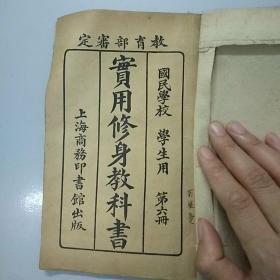 教育部審定
國民學校 學生用 第六冊
實用修身教科書
上海商務印書館出版